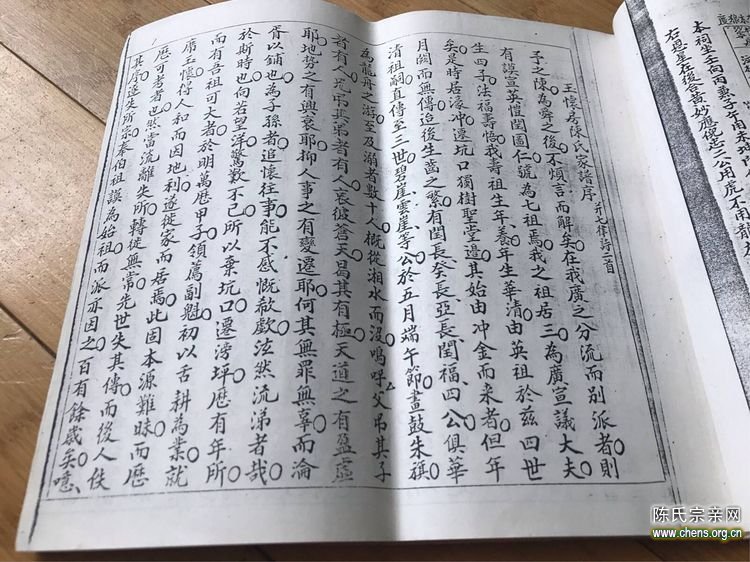 王懷房陳氏家譜序 并七律詩二首
予之陳為舜之後不煩言而解矣在我廣之分流而別派者則
有謨宣英愷閏圖仁號為七祖焉我之祖居三為廣宣議大夫
生四子法福壽悟我壽祖生年養年生華清由英祖於茲四世
矣是時居濠冲遷坑口獨樹聖堂邊其始由冲金而來者但年
月闕而無傳迨後生齒之繁有閏長奏長亞長閏福四公俱華
清祖嗣直傳至三世碧崖雲崖等公於五月端午節畫鼓朱旗
為龍舟之游至及溺者數十人概從湘水而沒嗚呼父弔其子
者有人兄弔其弟者有人哀彼蒼天曷其有極天道之有盈虛
耶地勢之有興衰耶抑人事之有變遷耶何其無罪無辜而淪
胥以鋪也為子孫者追懷往事能不感慨欷歔泫然流涕者哉
於斯時也向若望洋驚歎不已所以棄坑口遷滂坪歷有年所
而有吾祖可大者於明萬歷甲子領薦副魁初以舌耕為業就
席王懷仔人和而因地利遂從家而居焉此固本源難昧而歷
歷可考者也然當流離失所轉徙無常先世失其傳而後人佚
其序遂失所宗奉伯祖謨為始祖而派亦因之百有餘歲矣噫
本祠坐壬向丙兼子午用未坤
右迎星在後合黃妙應
二公用虎不用龍
陈氏宗亲网
www.chens.org.cn